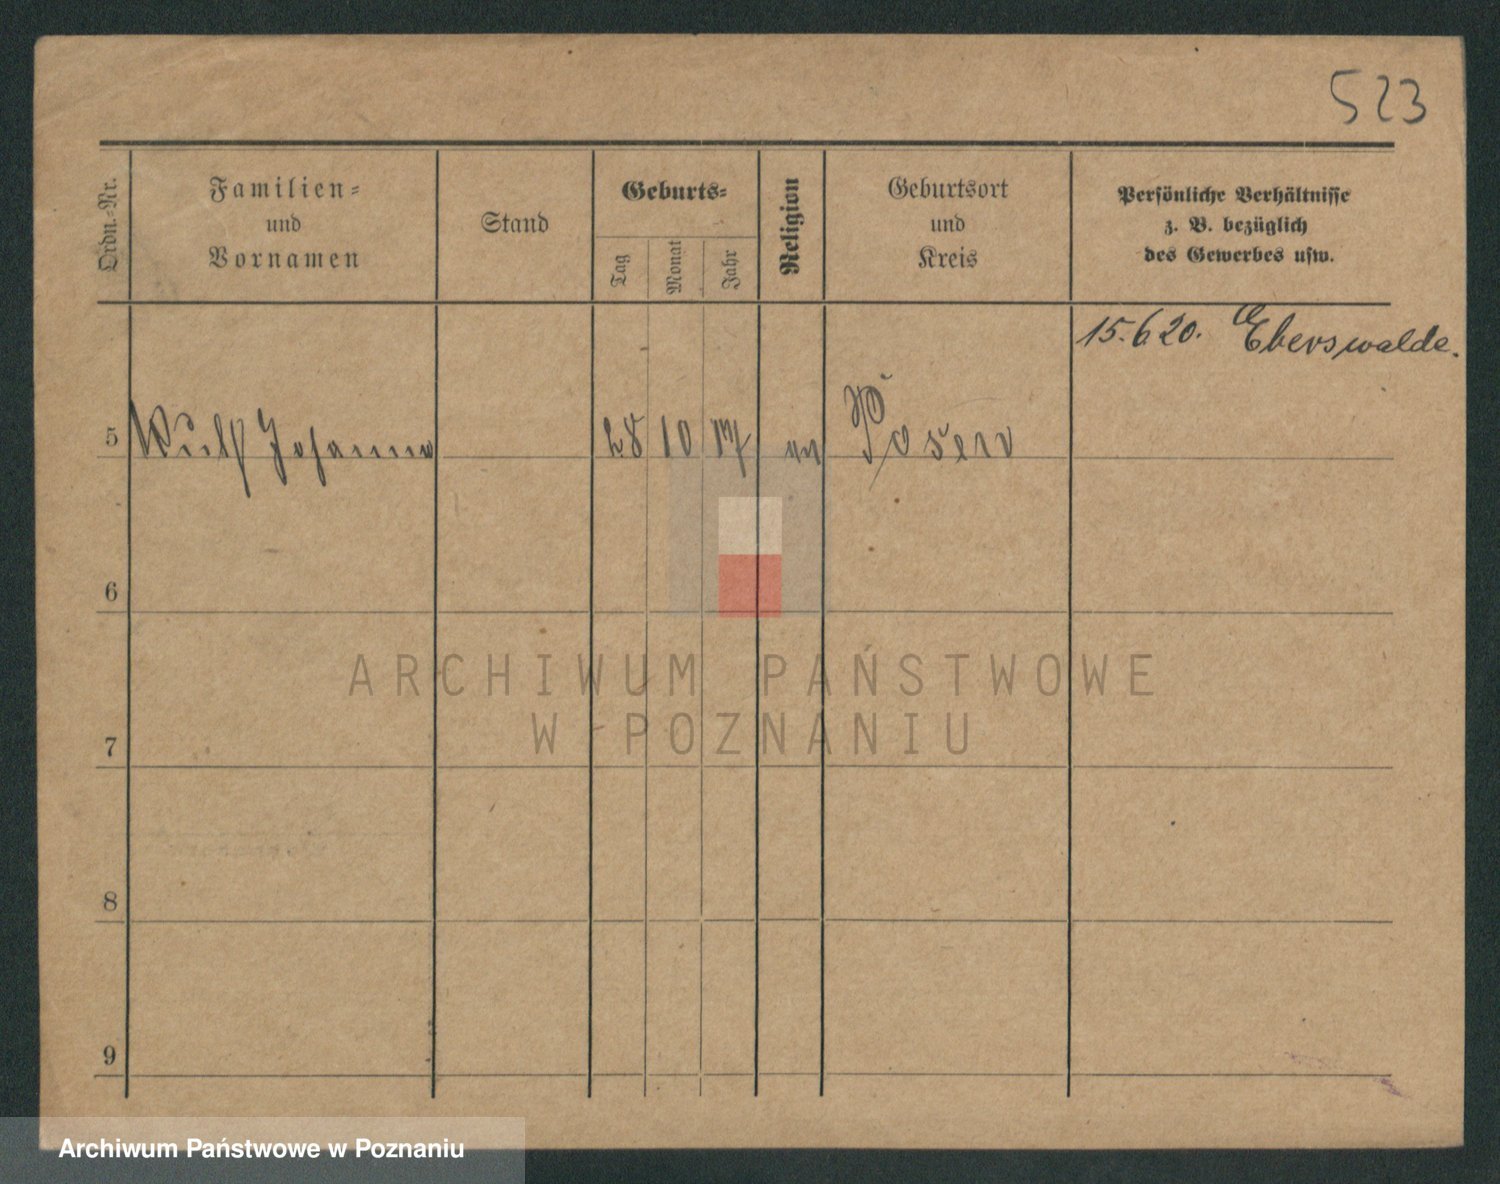 523
Ordn.-Nr.
Familien-
und
Vornamen
Stand
Geburts-
Tag
Monat
Jahr
Religion
Geburtsort
und
Kreis
Persönliche Verhältnisse
z. B. bezüglich
des Gewerbes usw.
15.6.20. Eberswalde.
5 Wulf Johanna 28 10 17 ev Posen
6
7
8
9
ARCHIWUM PAŃSTWOWE
W POZNANIU
Archiwum Państwowe w Poznaniu